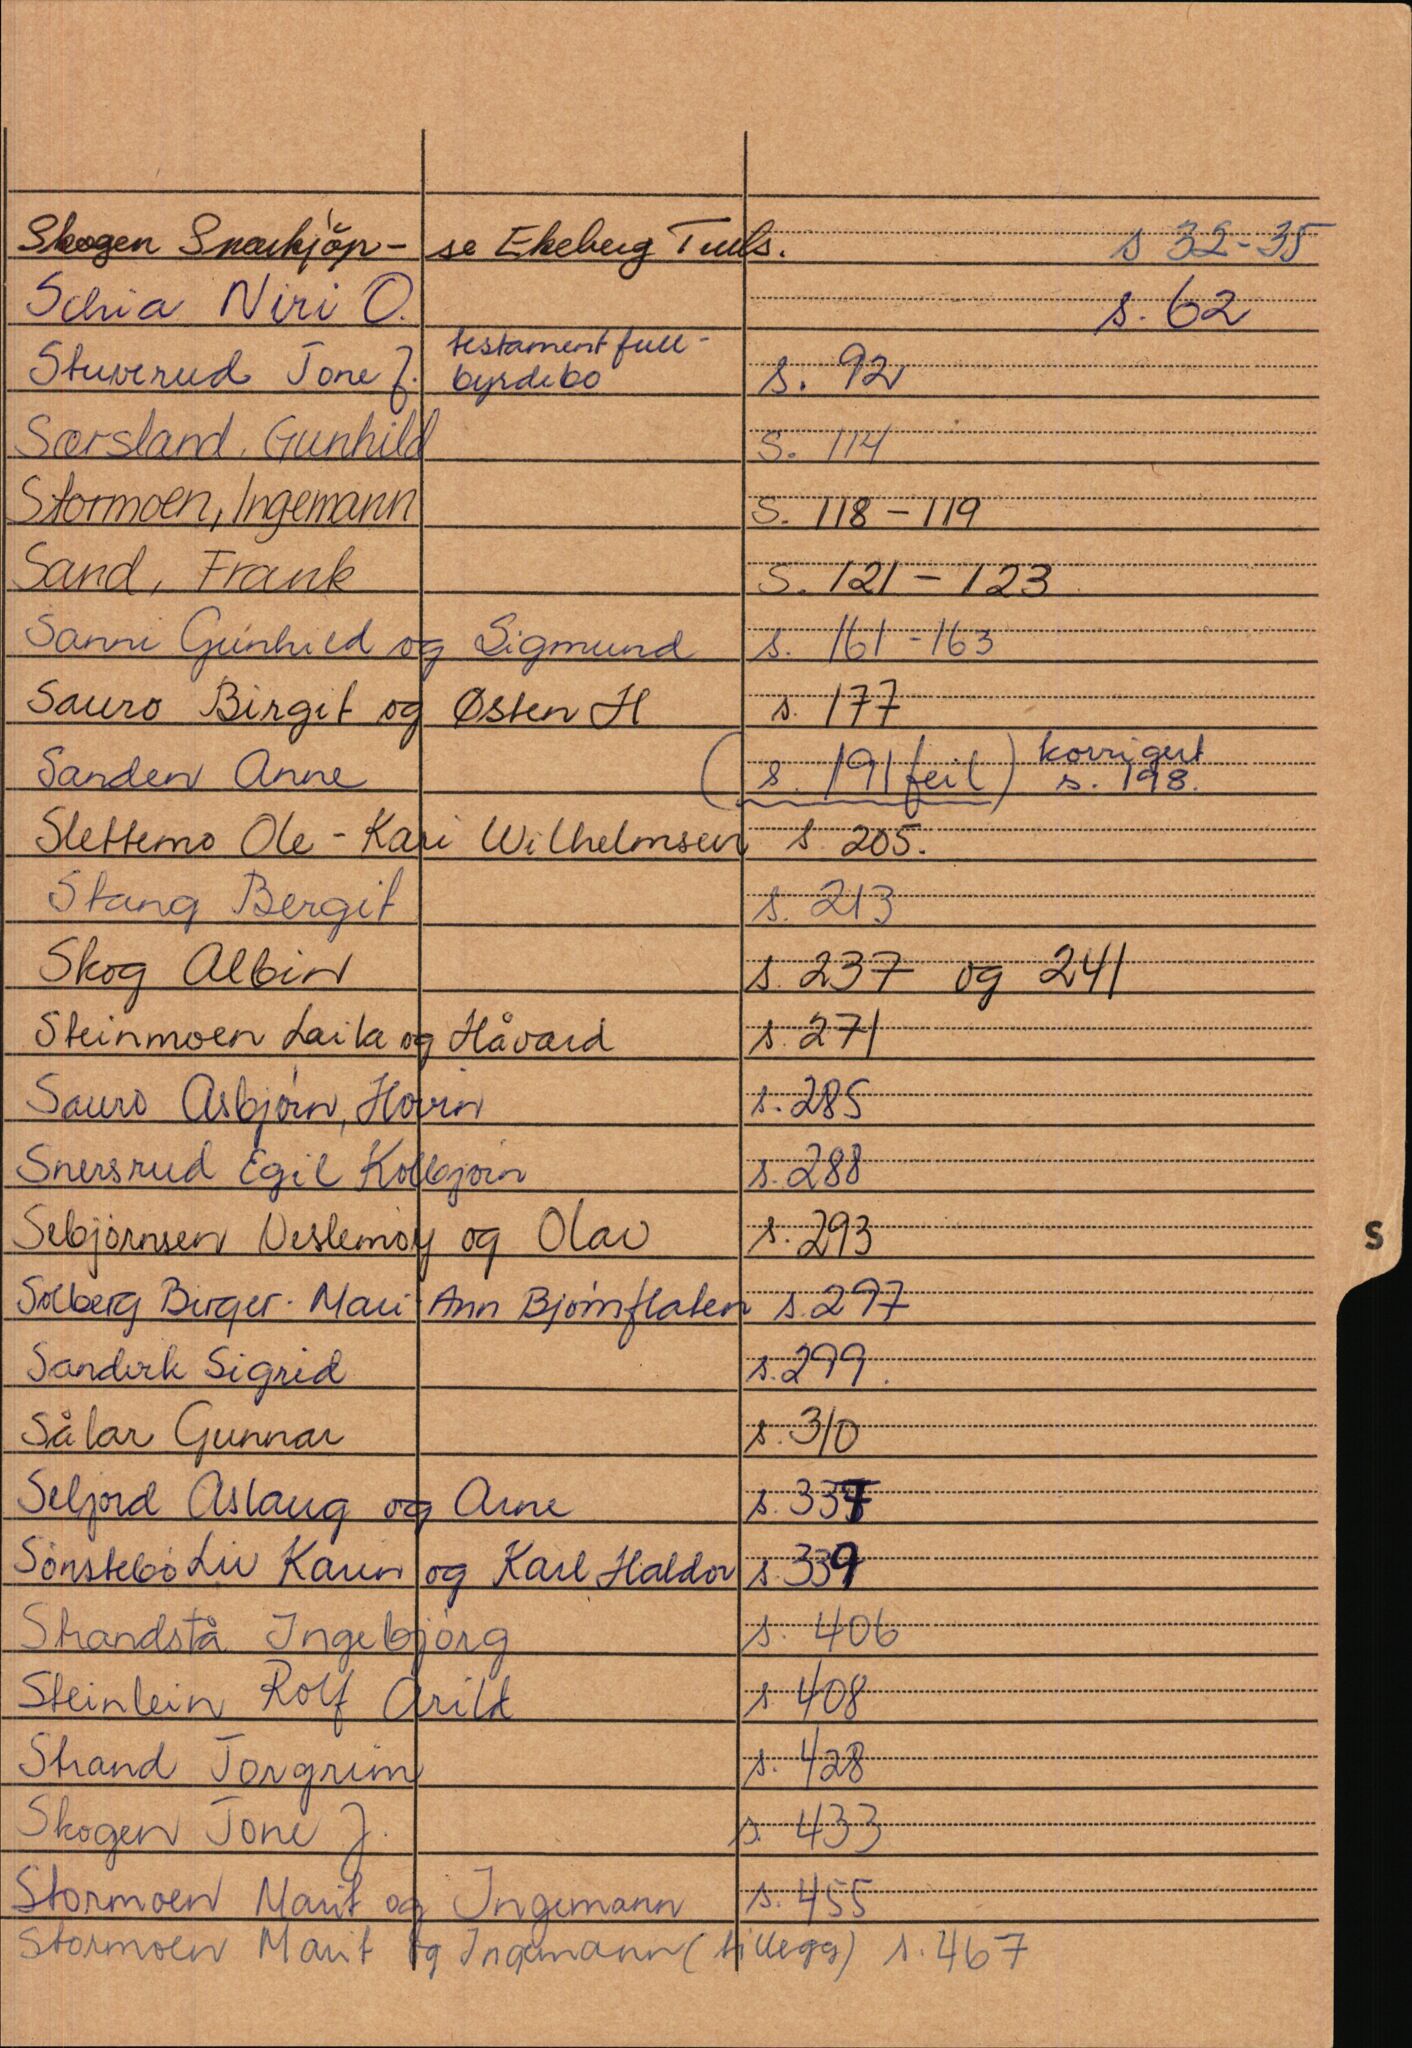 Skogen Snarkjöp - se Ekeberg Truls. s 32-35
Schia Niri O. s. 62
Stuverud Tone J. testamentfull-
byrdebo s. 92
Særsland, Gunhild S. 114
Stormoen, Ingemann S. 118-119
Sand, Frank S. 121-123
Sanni Gunhild og Sigmund s. 161-163
Sauro Birgit og Østen H s. 177
Sanden Anne (s. 191 feil) korrigert
s. 198.
Slettemo Ole - Kari Wilhelmsen s 205.
Stang Bergit s. 213
Skog Albin s. 237 og 241
Steinmoen Laila og Håvard s. 271
Sauro Asbjörn, Hovin s. 285
Snersrud Egil Kolbjörn s. 288
Sebjörnsen Veslemöy og Olav s. 293
Solberg Birger - Mari Ann Björnflaten s. 297
Sandvik Sigrid s. 299.
Sålar Gunnar s. 310
Seljord Aslaug og Arne s. 337
Sönstebö Liv Karin og Karl Haldor s. 339
Strandstå Ingebjörg s. 406
Steinlein Rolf Arild s 408
S
Strand Torgrim s. 428
Skogen Tone J. s. 433
Stormoen Marit og Ingemann s. 455
Stormoen Marit og Ingemann (tillegg) s. 467